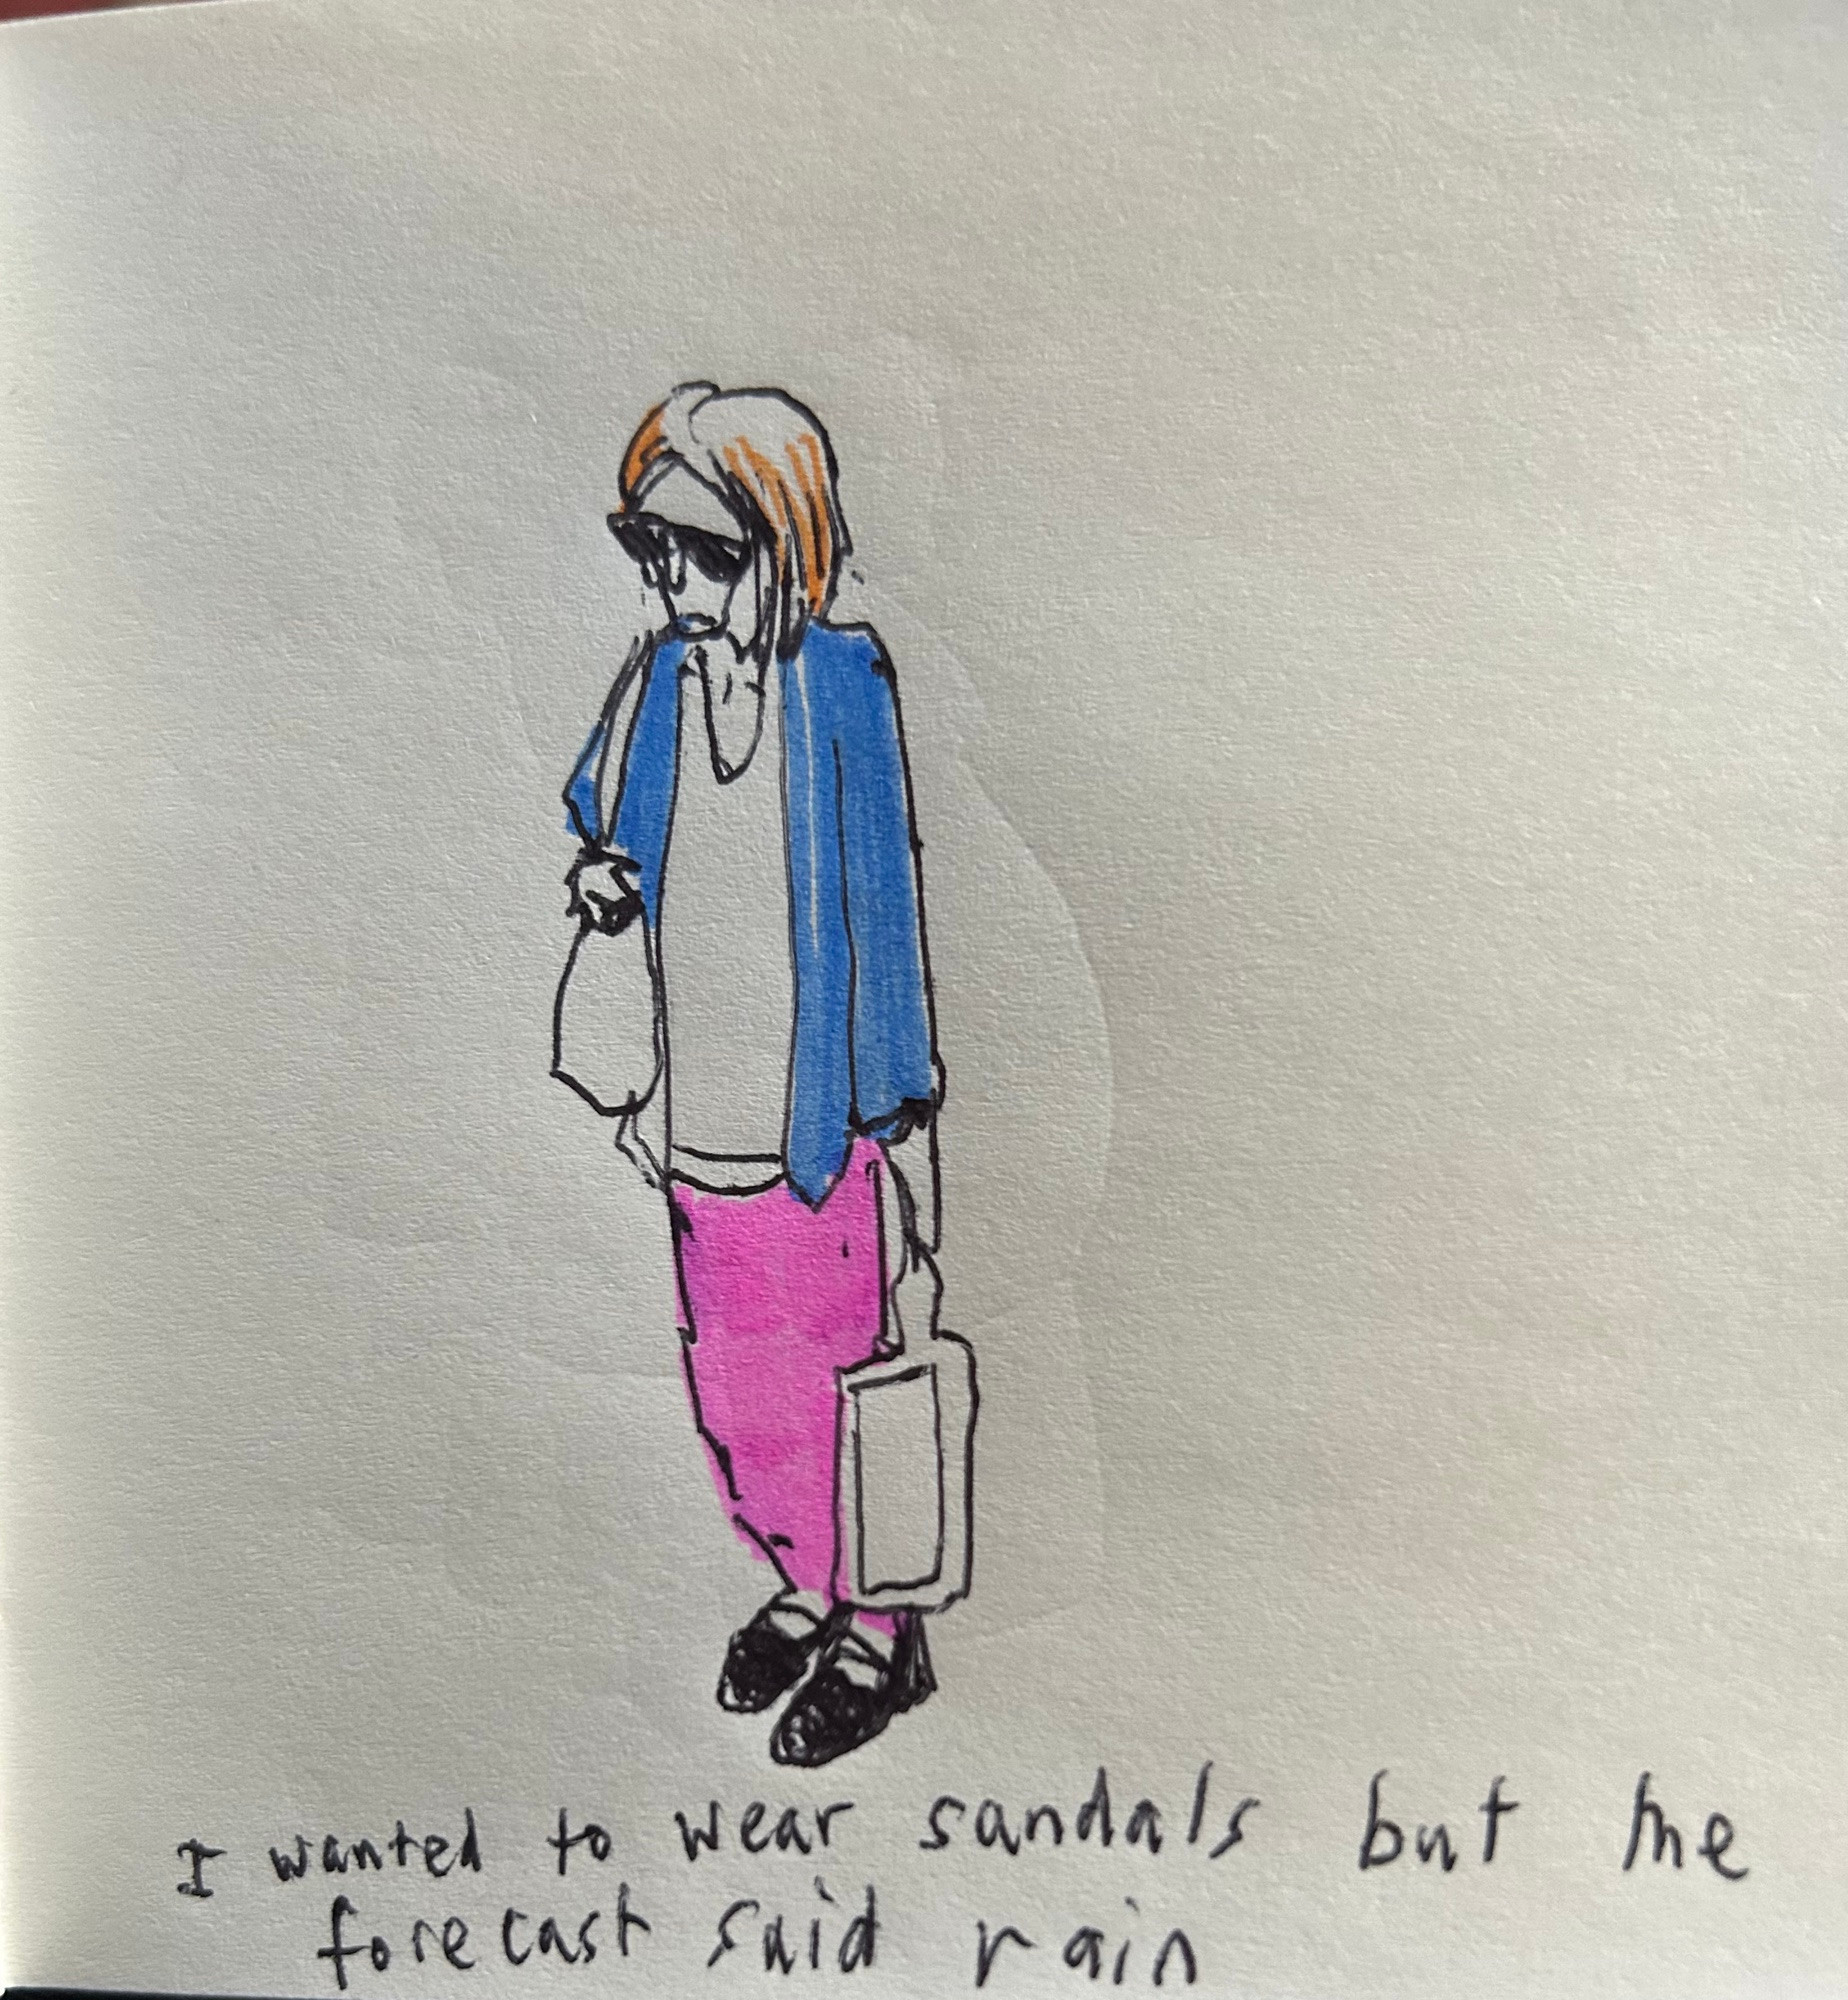 I wanted to wear sandals but the
forecast said rain